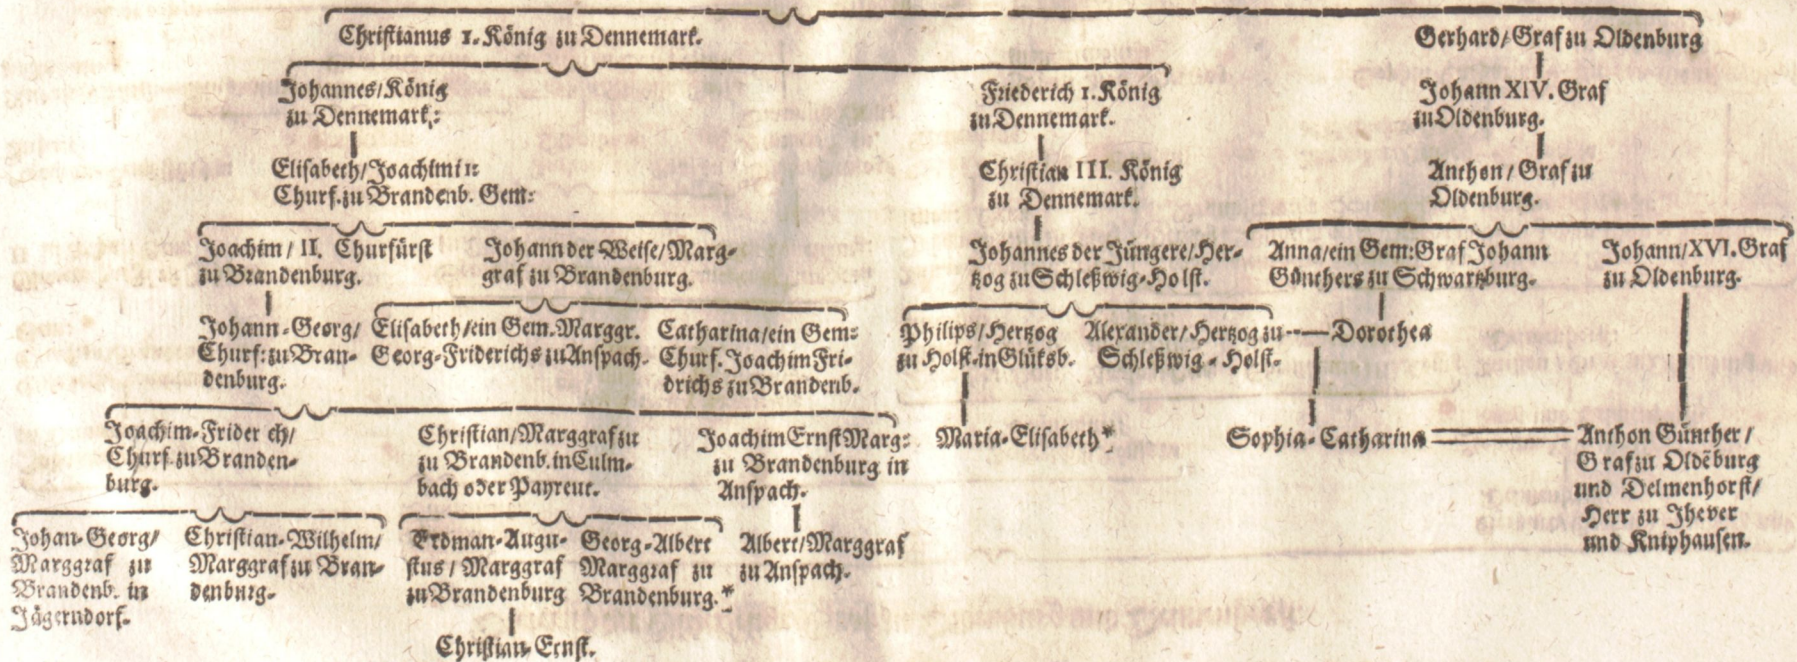 Christianus 1. König zu Dennemark.
Gerhard/Graf zu Oldenburg
Johannes/König
zu Dennemark:
Friederich 1. König
zu Dennemark.
Johann XIV. Graf
zu Oldenburg.
Elisabeth/Joachimi 1:
Churf. zu Brandenb. Gem:
Christian III. König
zu Dennemark.
Anthon/Graf zu
Oldenburg.
Joachim/II. Churfürst
zu Brandenburg.
Johann der Weise/Marg-
graf zu Brandenburg.
Johannes der Jüngere/Her-
tzog zu Schleßwig-Holst.
Anna/ein Gem:Graf Johann
Günthers zu Schwartzburg.
Johann/XVI. Graf
zu Oldenburg.
Johann-Georg/
Churf: zu Bran-
denburg.
Elisabeth/ein Gem. Marggr.
Georg-Friderichs zu Anspach.
Catharina/ein Gem:
Churf. Joachim Fri-
drichs zu Brandenb.
Philips/Hertzog
zu Holst. in Glüksb.
Alexander/Hertzog zu
Schleßwig-Holst.
Dorothea
Joachim-Frider ch/
Churf. zu Branden-
burg.
Christian/Marggraf zu
zu Brandenb. in Culm-
bach oder Payreut.
Joachim Ernst Marg-
zu Brandenburg in
Anspach.
Maria-Elisabeth*
Sophia-Catharina
Anthon Günther/
Graf zu Oldēburg
und Delmenhorst/
Herr zu Jhever
und Kniphausen.
Johan-Georg/
Marggraf zu
Brandenb. in
Jägerndorf.
Christian-Wilhelm/
Marggraf zu Bran-
denburg.
Erdman-Augu-
stus/Marggraf
zu Brandenburg
Georg-Albert
Marggraf zu
Brandenburg.*
Albert/Marggraf
zu Anspach.
Christian-Ernst.